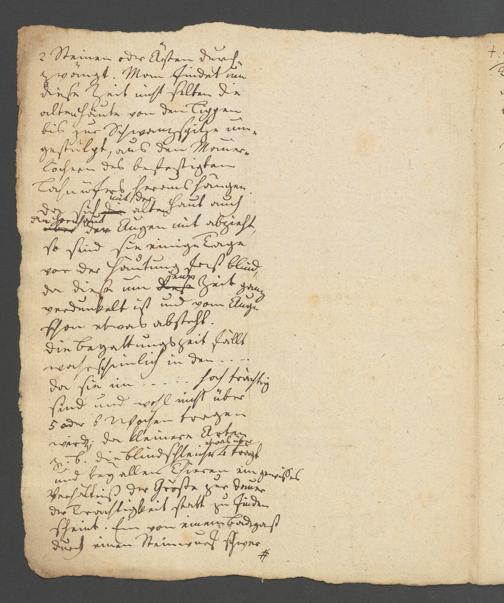 2 Steinen oder Ästen durch-
zwängt. Man findet um
diese Zeit nicht selten die
alten Häute von den Lippen
bis zur Schwanzspitze um-
gestülpt, aus den Mauer-
löchern des befestigten
heraus hängen.
Da sich mit der alten Haut auch
die der Augen mit abzieht,
so sind sie einige Tage
vor der Häutung fast blind,
da diese um jene Zeit ganz
verdunkelt ist und vom Auge
schon etwas absteht.
Die Begattungszeit fällt
wahrscheinlich in den ....
da sie im ..... hochträchtig
sind und wohl nicht über
5 oder 6 Wochen tragen
werd: da kleinere Arten
z. b. die Blindschleiche 4 tragt
und bey allen Tieren ein gewisses
Verhältniß der Größe zur Dauer
der Trächtigkeit statt zu finden
scheint. Ein von einem Badegast
durch einen Steinwurf schwer
#